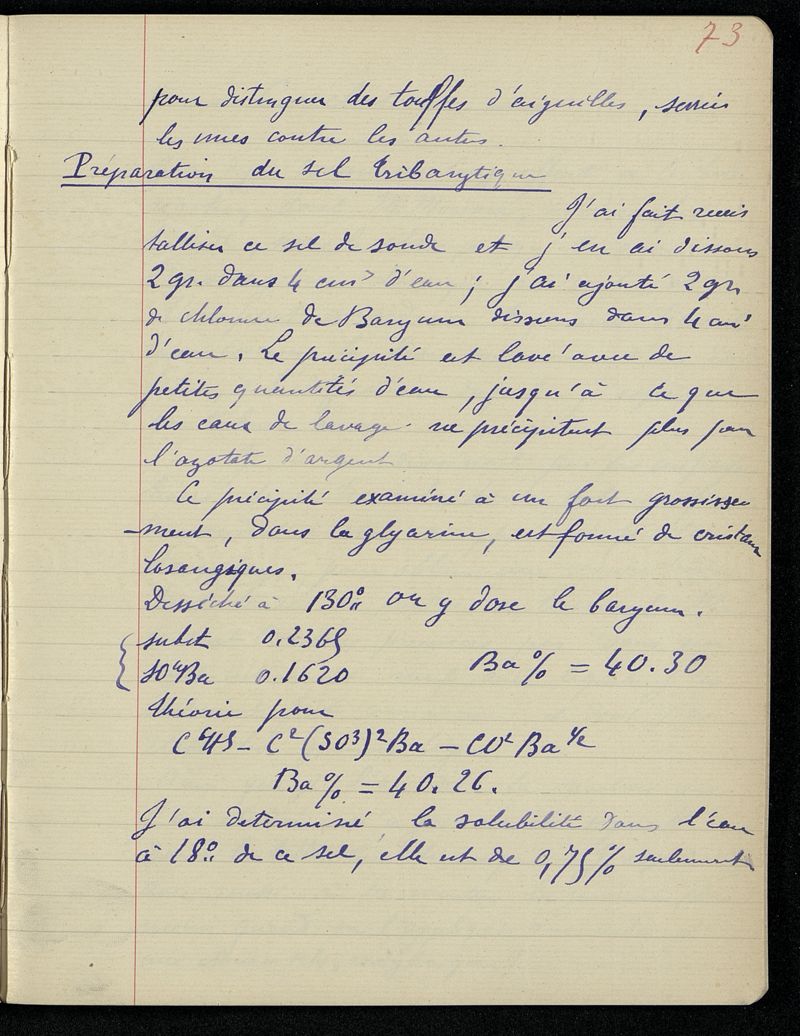 73
pour distinguer des touffes d'aiguilles, serrées
les unes contre les autres.
Préparation du sel tribarytique
J'ai fait recris
talliser ce sel de soude et j'en ai dissous
2 gr. dans 4 cm³ d'eau ; j'ai ajouté 2 gr.
de chlorure de Baryum dissous dans 4 cm³
d'eau. Le précipité est lavé avec de
petites quantités d'eau, jusqu'à ce que
les eaux de lavage ne précipitent plus par
l'azotate d'argent
Ce précipité examiné à un fort grossisse
-ment, dans la glycerine, est formé de cristaux
losangiques.
Desséché à 130° on y dose le baryum.
subst 0.2365
SO⁴Ba 0.1620 Ba% = 40.30
théorie pour
C⁶H⁵ - C²(SO³)²Ba - CO²Ba½
Ba% = 40.26.
J'ai determiné la solubilité dans l'eau
à 18° de ce sel, elle est de 0,75% seulement